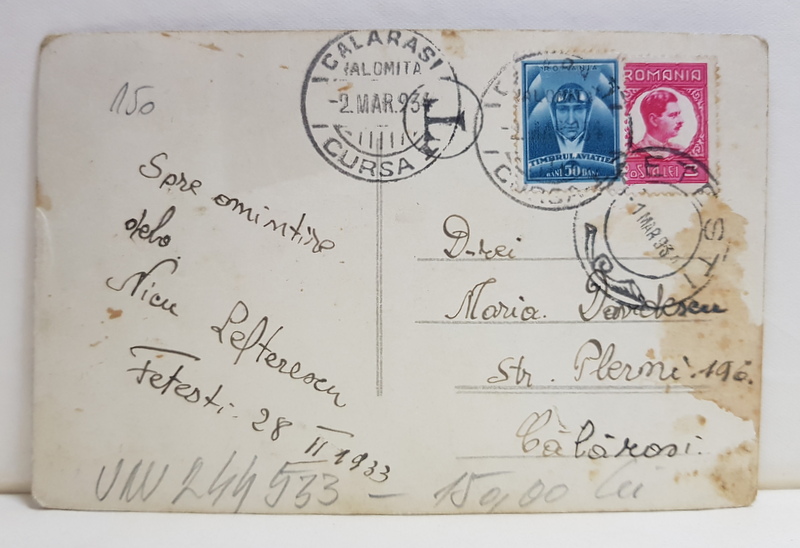 150
CALARASI
IALOMITA
-2.MAR.934
CURSA
T
ROMANIA
TIMBRUL AVIATIEI
BANI 50 BANI
ROMANIA
LEI
FETESTI
1 MAR 93
Spre amintire
dela
Nicu Lefterescu
Fetesti. 28 II 1933
D-rei
Maria. Davidescu
Str.
Călărasi.
244533 - 150,00 lei